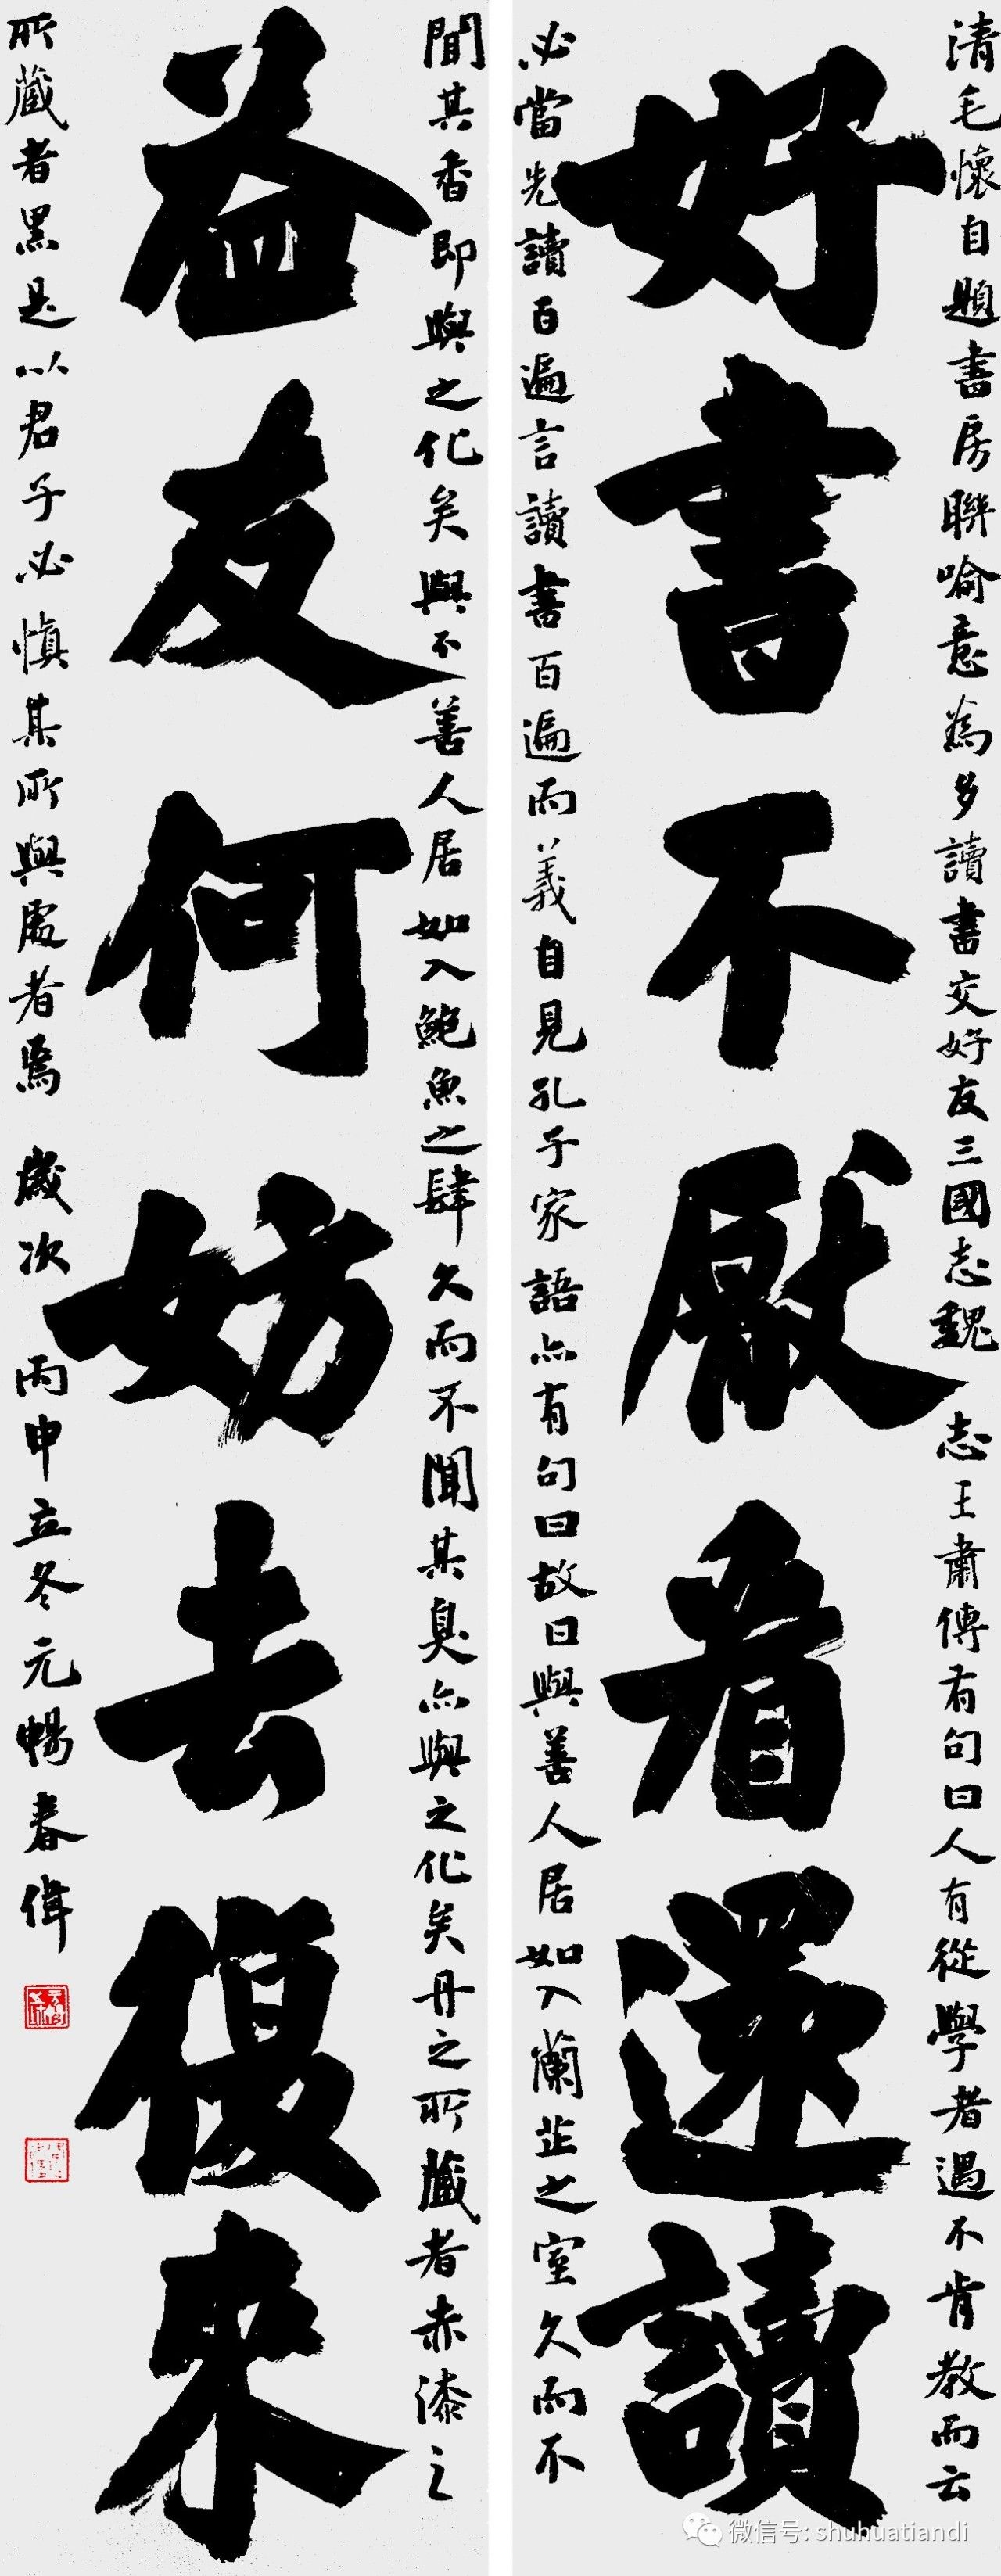 清毛懷自題書房聯喻意為多讀書交好友三國志魏志王肅傳有句曰人有從學者遇不肯教而云
好書不厭看還讀
必當先讀百遍言讀書百遍而義自見孔子家語亦有句曰故曰與善人居如入蘭芷之室久而不
聞其香即與之化矣與不善人居如入鮑魚之肆久而不聞其臭亦與之化矣丹之所藏者赤漆之
益友何妨去復來
所藏者黑是以君子必慎其所與處者焉 歲次丙申立冬元暢春偉
微信号: shuhuatiandi